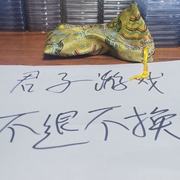 君子游戏
不退不换